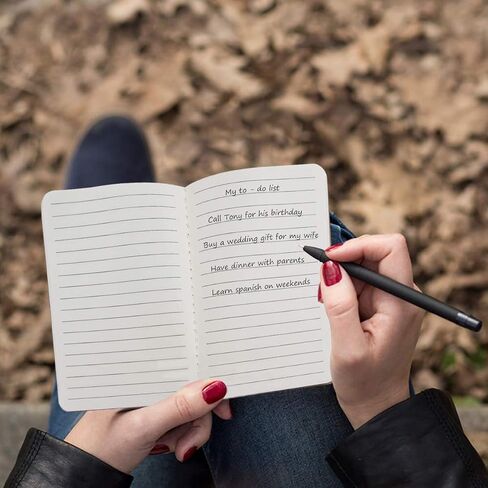 My to - do list
Call Tony for his birthday
Buy a wedding gift for my wife
Have dinner with parents
Learn spanish on weekends